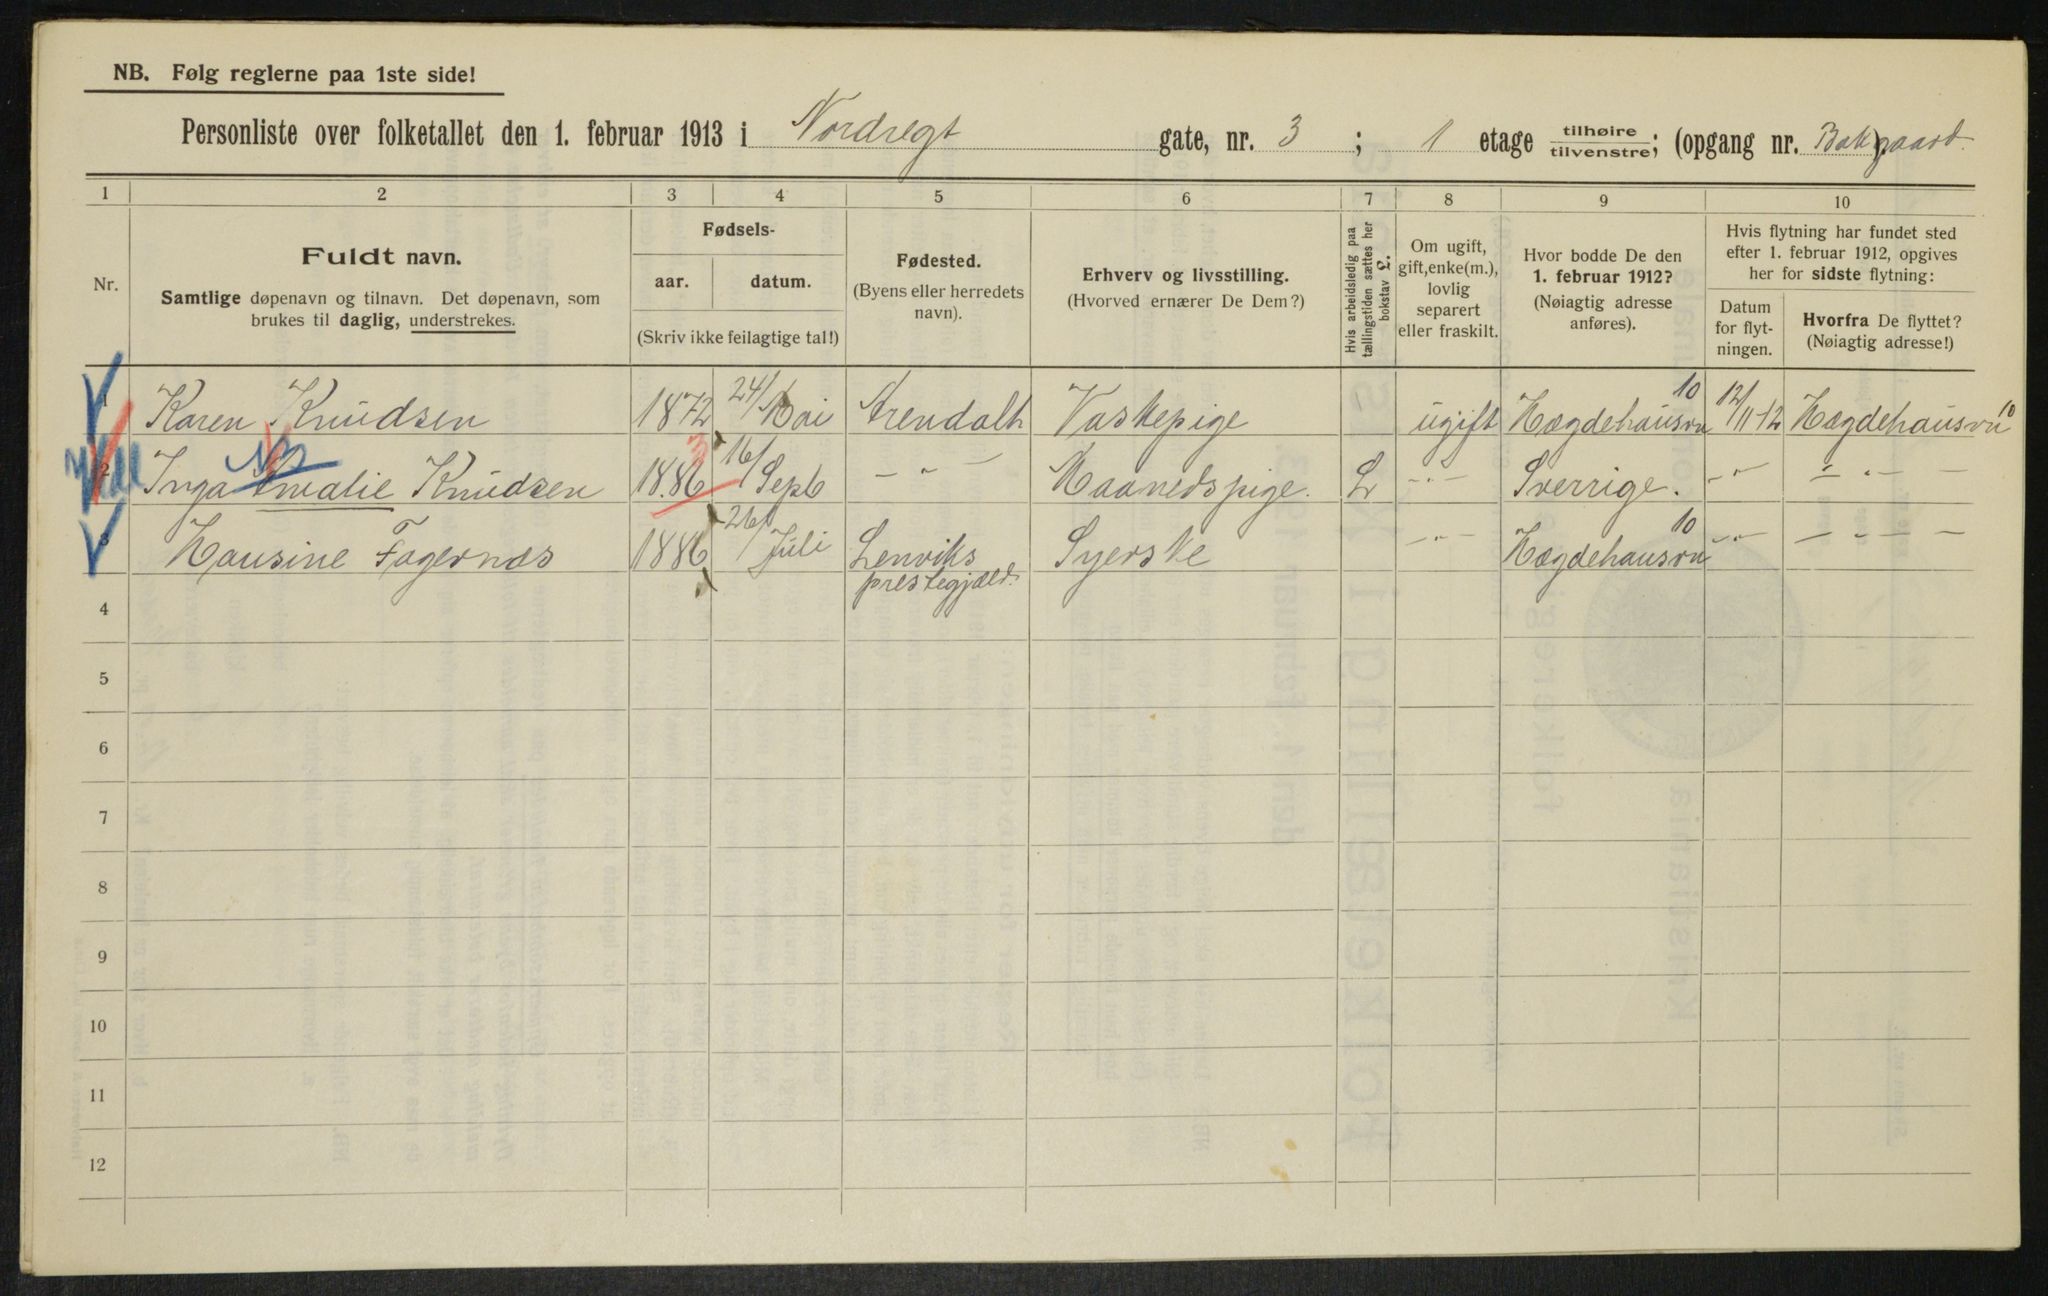 NB. Følg reglerne paa 1ste side!
Personliste over folketallet den 1. februar 1913 i Nordregt gate, nr. 3 ; 1 etage tilhøire tilvenstre; (opgang nr. Bakgaard
1 2 3 4 5 6 7 8 9 10
Nr.
Fuldt navn.
Samtlige døpenavn og tilnavn. Det døpenavn, som
brukes til daglig, understrekes.
Fødsels-
aar. datum.
(Skriv ikke feilagtige tal!)
Fødested.
(Byens eller herredets
navn).
Erhverv og livsstilling.
(Hvorved ernærer De Dem?)
Hvis arbeidsledig paa
tællingstiden sættes her
bokstav L.
Om ugift,
gift, enke(m.),
lovlig
separert
eller fraskilt.
Hvor bodde De den
1. februar 1912?
(Nøiagtig adresse
anføres).
Hvis flytning har fundet sted
efter 1. februar 1912, opgives
her for sidste flytning:
Datum
for flyt-
ningen.
Hvorfra De flyttet?
(Nøiagtig adresse!)
1 Karen Knudsen 1872 24/ Mai Arendalh Vaskepige ugift Hægdehausvn 10 12/11-12 Hægdehausvn 10
2 Inga Amalie Knudsen 1886 3 16/ Septb — " — Maanedspige. L -"- Sverrige. -"- — " —
3 Hansine Fagernæs 1886 26/ Juli Lenviks Syerske -"- Hægdehausvn 10 -"- — " —
prestegjæld.
4
5
6
7
8
9
10
11
12